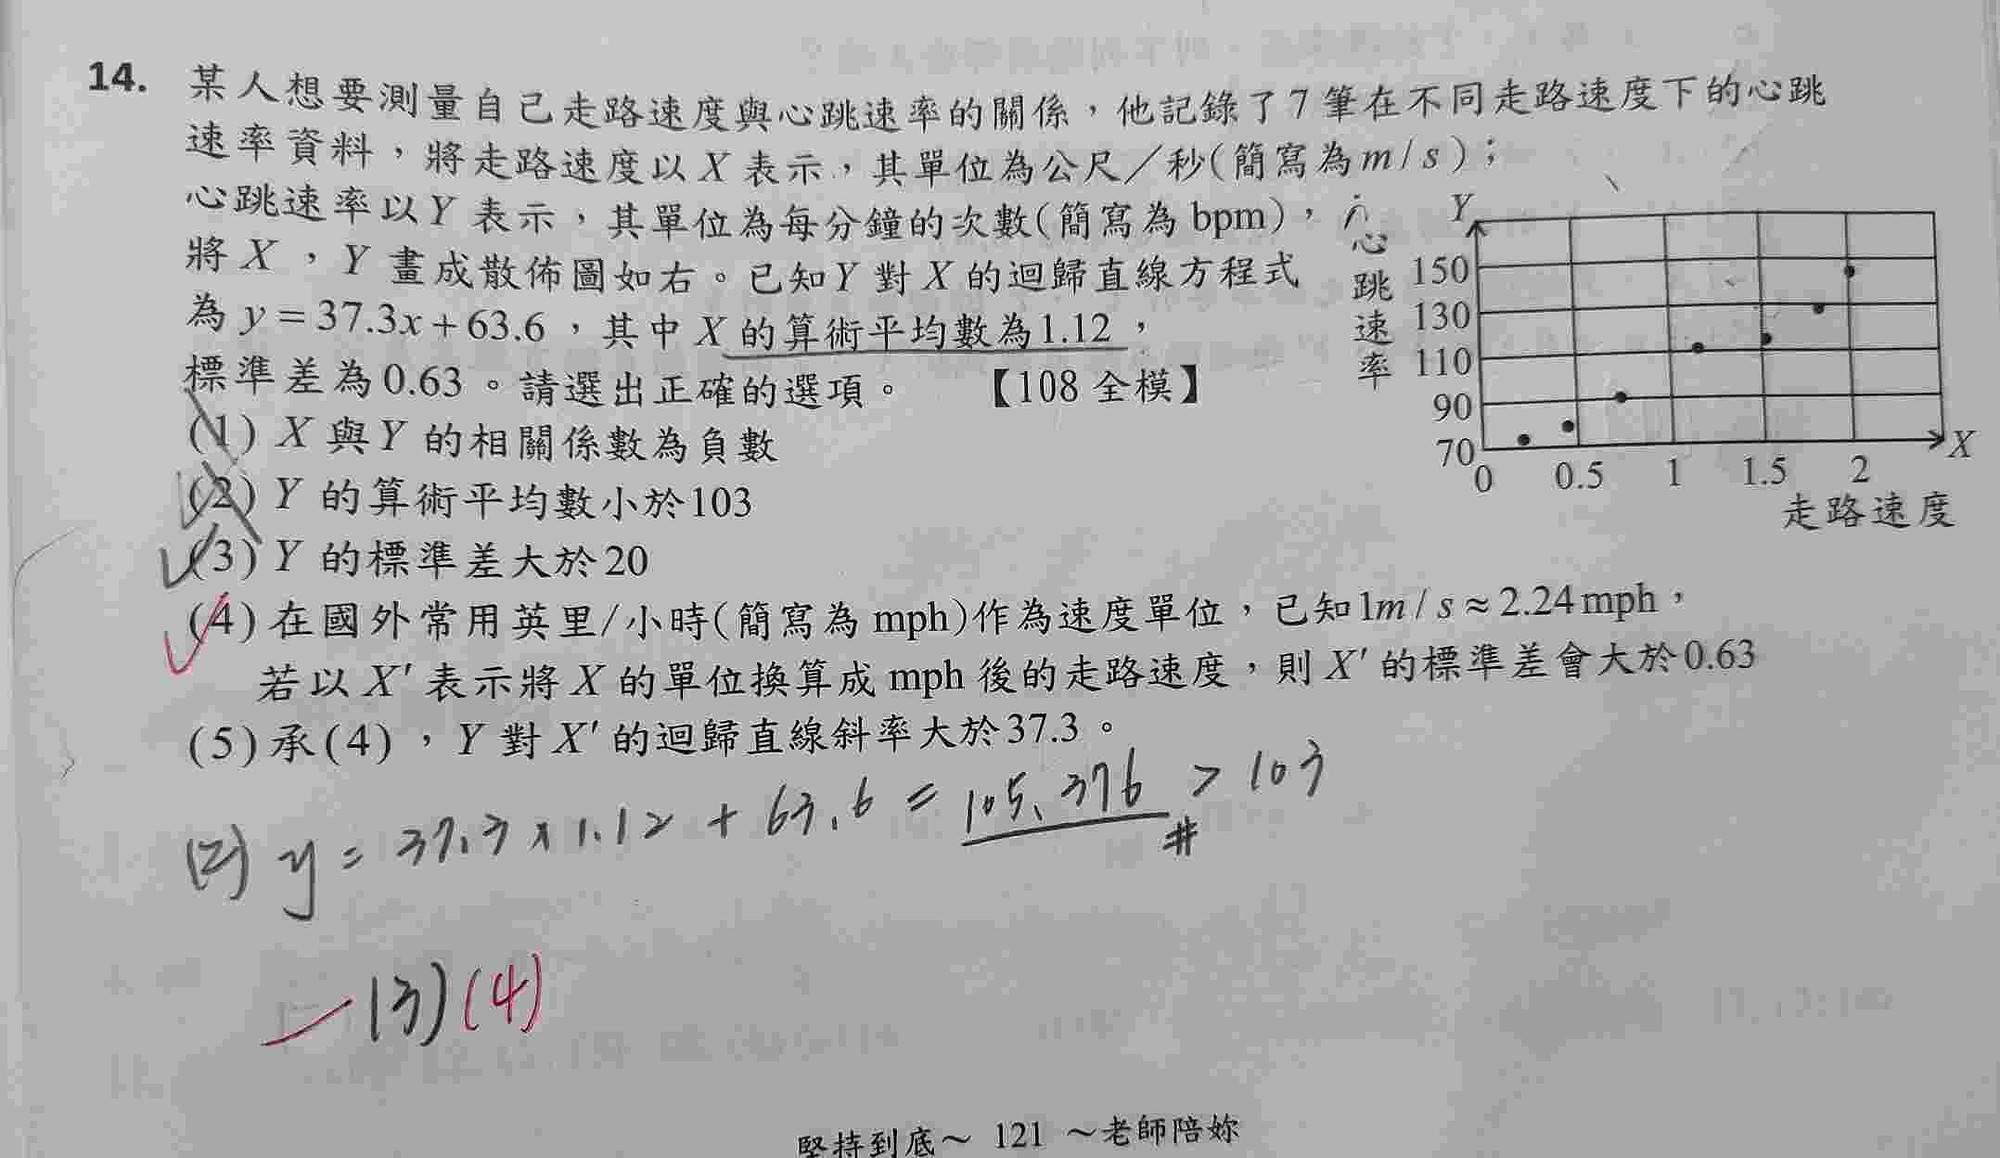 14. 某人想要測量自己走路速度與心跳速率的關係，他記錄了7筆在不同走路速度下的心跳
速率資料，將走路速度以X表示，其單位為公尺／秒(簡寫為m/s)；
心跳速率以Y表示，其單位為每分鐘的次數(簡寫為bpm)，
將X，Y畫成散佈圖如右。已知Y對X的迴歸直線方程式
為y=37.3x+63.6，其中X的算術平均數為1.12，
標準差為0.63。請選出正確的選項。 【108全模】
(1) X與Y的相關係數為負數
(2) Y的算術平均數小於103
(3) Y的標準差大於20
(4) 在國外常用英里/小時(簡寫為mph)作為速度單位，已知1m/s≈2.24mph，
若以X'表示將X的單位換算成mph後的走路速度，則X'的標準差會大於0.63
(5) 承(4)，Y對X'的迴歸直線斜率大於37.3。
Y
心跳速率
150
130
110
90
70
0 0.5 1 1.5 2 X
走路速度
(2) y = 37.3×1.12 + 63.6 = 105.376 > 103
#
(3)(4)
堅持到底～ 121 ～老師陪妳